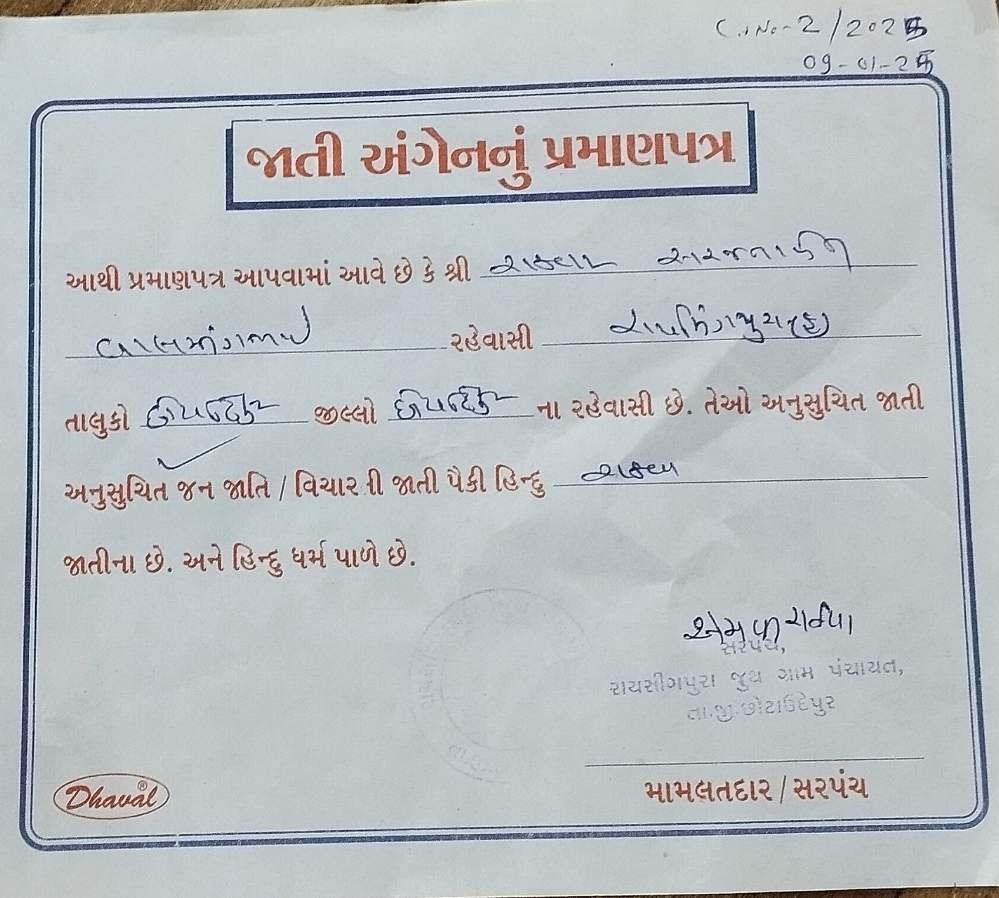 C.No-2/2025
09-01-25
જાતી અંગેનનું પ્રમાણપત્ર
આથી પ્રમાણપત્ર આપવામાં આવે છે કે શ્રી
રહેવાસી
તાલુકો છોટાઉદેપુર જીલ્લો છોટાઉદેપુર ના રહેવાસી છે. તેઓ અનુસુચિત જાતી
અનુસુચિત જન જાતિ / વિચારતી જાતી પૈકી હિન્દુ રાઠવા
જાતીના છે. અને હિન્દુ ધર્મ પાળે છે.
સરપંચ,
રાયસીંગપુરા જુથ ગ્રામ પંચાયત,
તા.જી.છોટાઉદેપુર
Dhaval®
મામલતદાર / સરપંચ